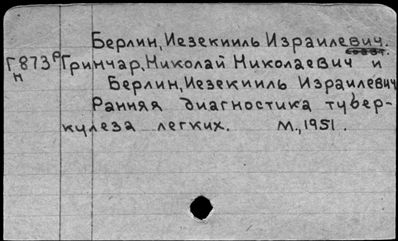 Берлин, Иезекииль Израилевич.
соавт.
Г873 Гринчар, Николай Николаевич и
н Берлин, Иезекииль Израилевич
Ранняя диагностика тубер-
кулеза легких. М., 1951.